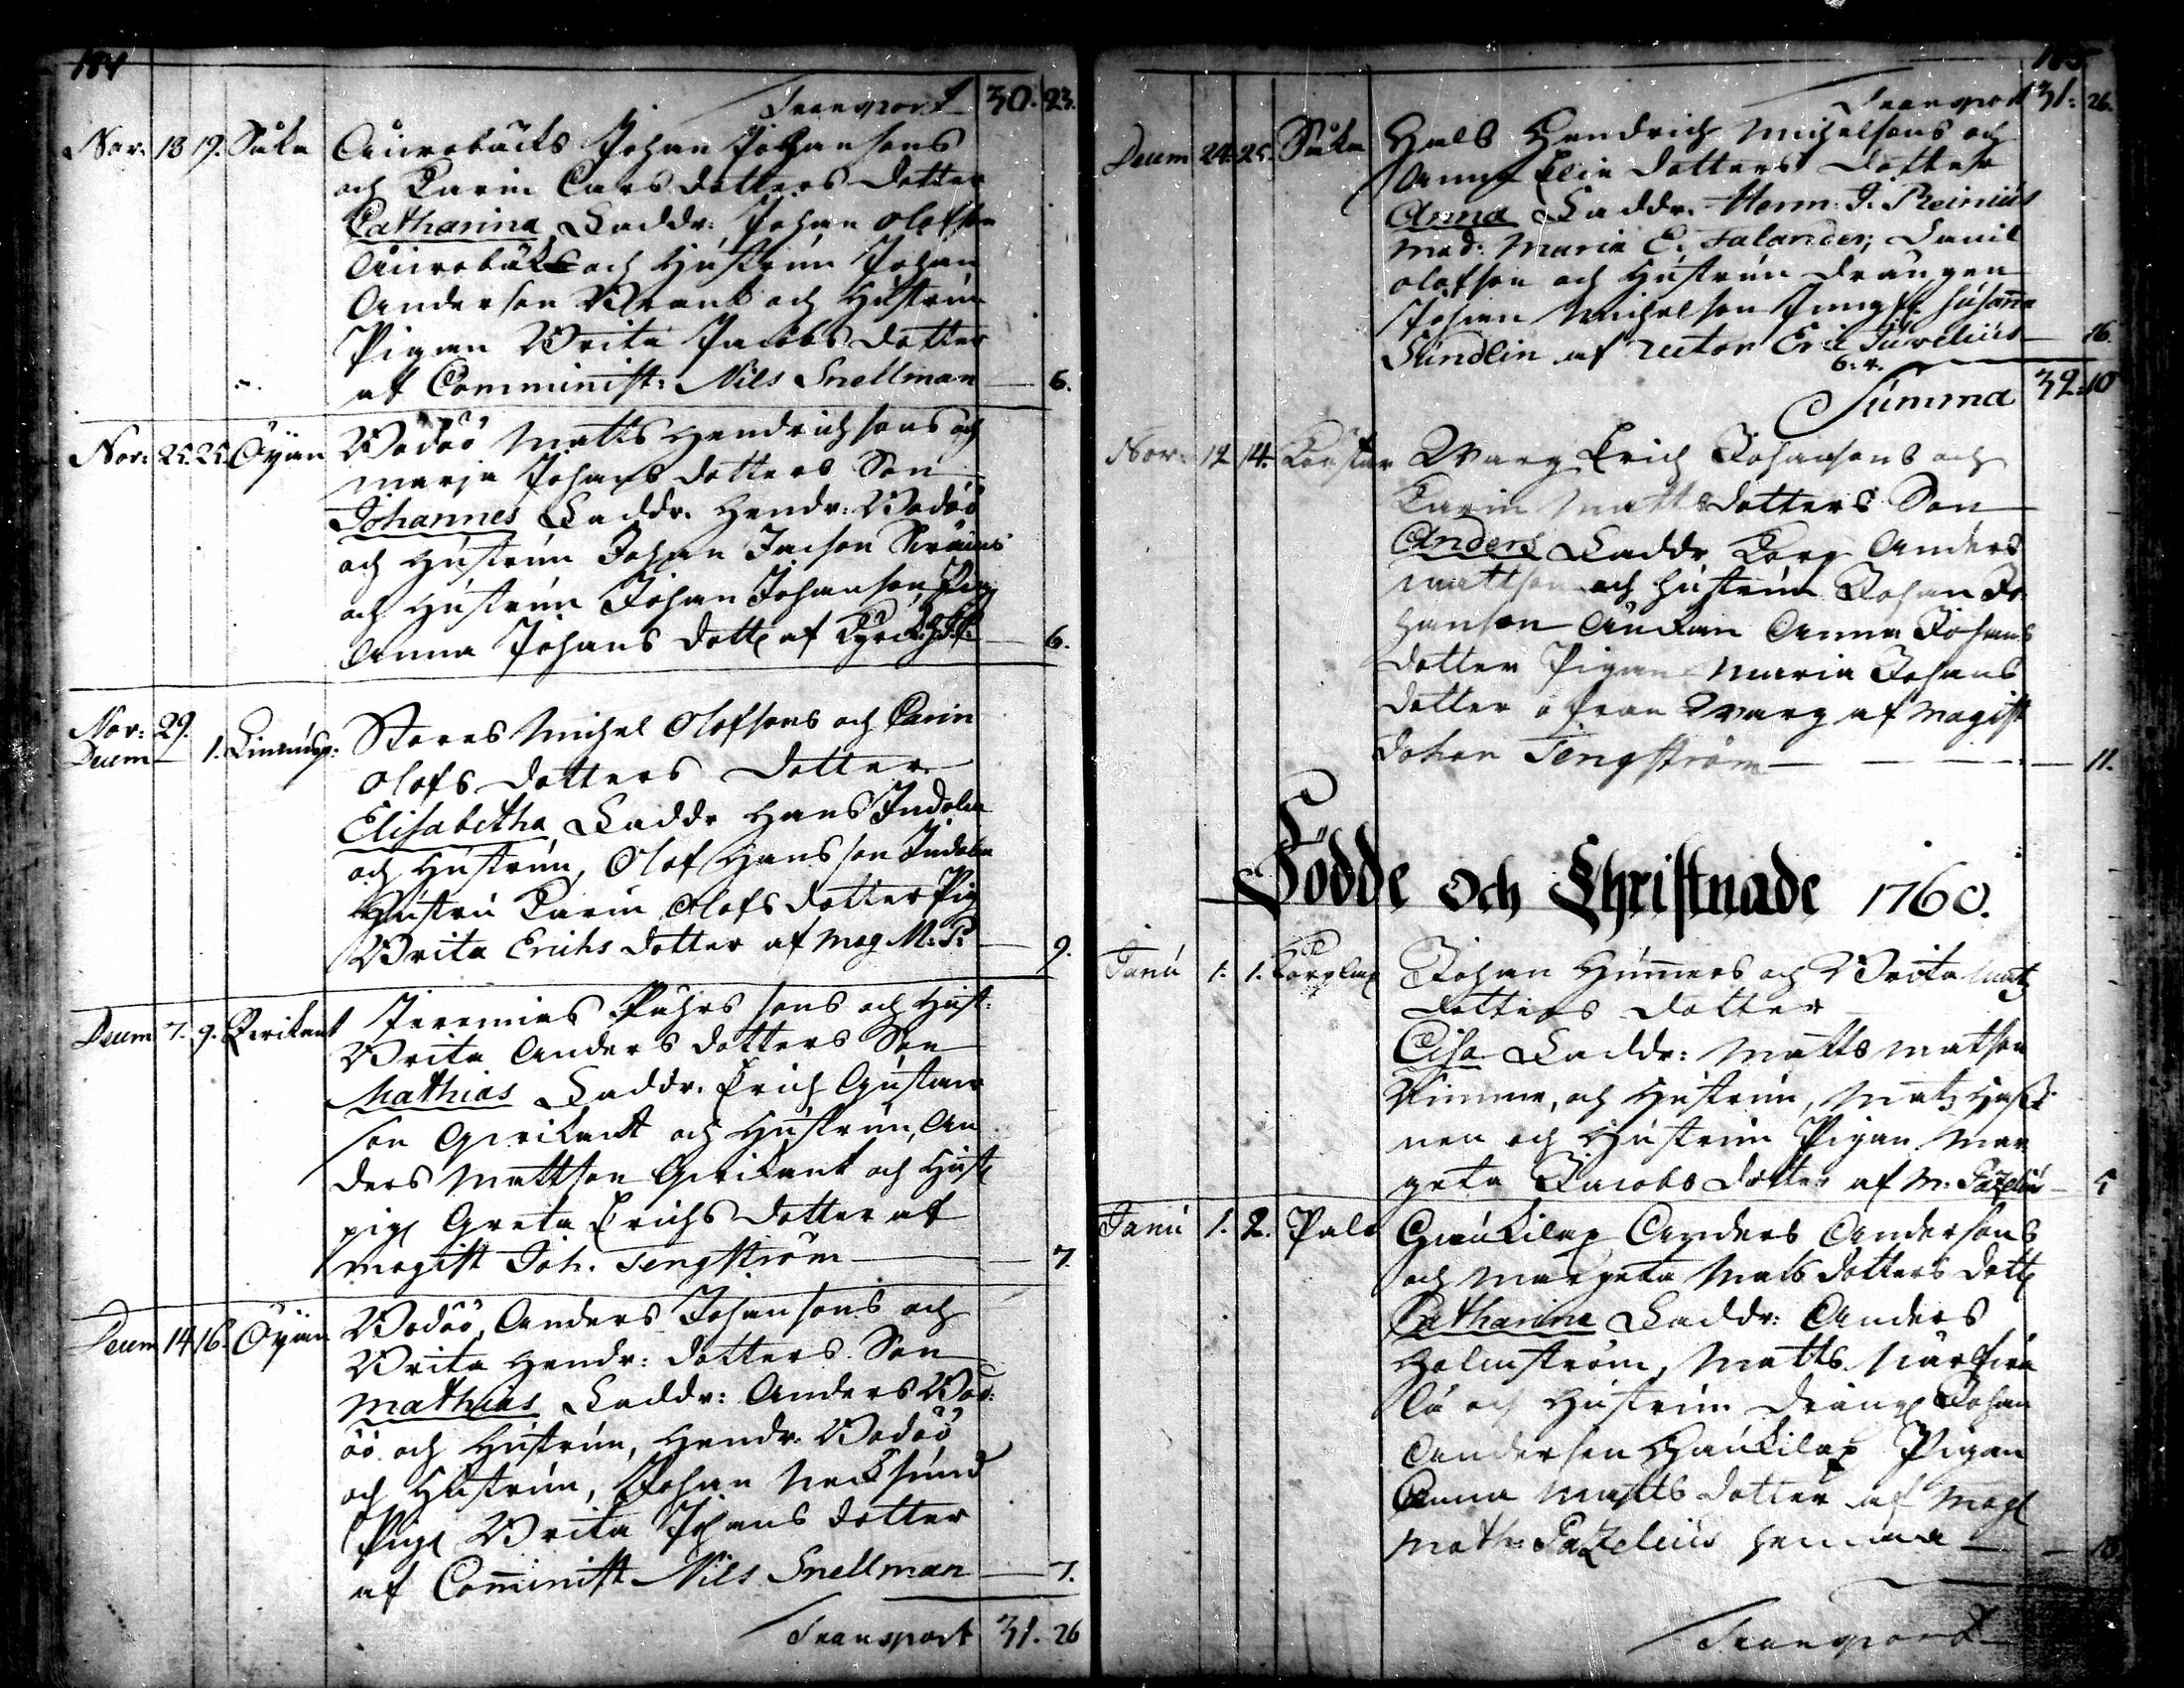 184
Transport 30. 23.
Nov: 18 19. Såka Aurobäcks Johan Johansons
och Karin Larsdotters dotter
Catharina Faddr: Johan Olofson
Aurobäck och Hustrun Johan
Anderson Brant och Hustrun
Pigan Brita Jacobs dotter
af Comminist: Nils Snellman — 6.
Nov: 25. 25. Öijan Bodöö Matts Hendrichsons och
Marja Johans dotters Son
Johannes Faddr. Hendr: Bodöö
och Hustrun Johan Jacson
och Hustrun Johan Johanson, Pig
Anna Johans dott af — 6.
Nov: 29.
Decem — 1. Linnusp: Stores Michel Olofsons och Carin
Olofs dotters dotter
Elisabetha Faddr Hans Indola
och Hustrun, Olof Hansson Indola
Hustru Karin Olofs dotter Pig
Brita Erichs dotter af Mag M: P: — 9.
Decem 7. 9. Qvikant Jeremias Påhrs sons och Hust:
Brita Anders dotters Son
Mathias Faddr. Erich Gustaw
son Qvikant och Hustrun, An
ders Mattson Qvikant och Hust
pig Greta Erichs dotter af
Magist Joh. Tengström — 7.
Decem 14. 16. Öijan Bodöö, Anders Johansons och
Brita Hendr: dotters Son
Mathias Faddr: Anders Bod:
öö och Hustrun, Hendr. Bodöö
och Hustrun, Johan Necksund
Pig Brita Johans dotter
af Cominist Nils Snellman — 7.
Transport 31. 26
185
Transport 31: 26.
Decem 24. 25. Såka Hals Hendrich Michelsons och
Anna Elia dotters dotter
Anna Faddr. Herm: J. Reinius
Mad: Maria E. Falander, Daniel
Olofson och Hustrun drängen
Johan Michelson Jungfr: Susanna
Sundlin af rector Eric Juvelius — 16.
6: 4.
Summa 32: 10
Nov: 12 14. Qvarg Erich Johansons och
Karin Matts dotters Son
Anders Faddr Korp Anders
Mattson och Hustrun Johan Jo
hanson Aukan Anna Johans
dotter Pigan Maria Johans
dotter ifrån Qvarg af Magist
Johan Tengström — — — 11.
Födde och Christnade 1760.
Janu 1. 1. Korplax Johan Hummers och Brita Matz
dotters dotter
Lisa Faddr: Matts Matson
Kimme, och Hustrun, Matz
nen och Hustrun Pigan Mar
geta Jacobs dotter af M. Pazelius — 5
Janu 1. 2. Palo Haukilax Anders Andersons
och Margeta Mats dotters dott
Catharina Faddr: Anders
Holmström, Matts
la och Hustrun Dräng Johan
Anderson Haukilax Pigan
Anna Matts dotter af Mag
Math: Pazelius hemma — — 13.
Transport